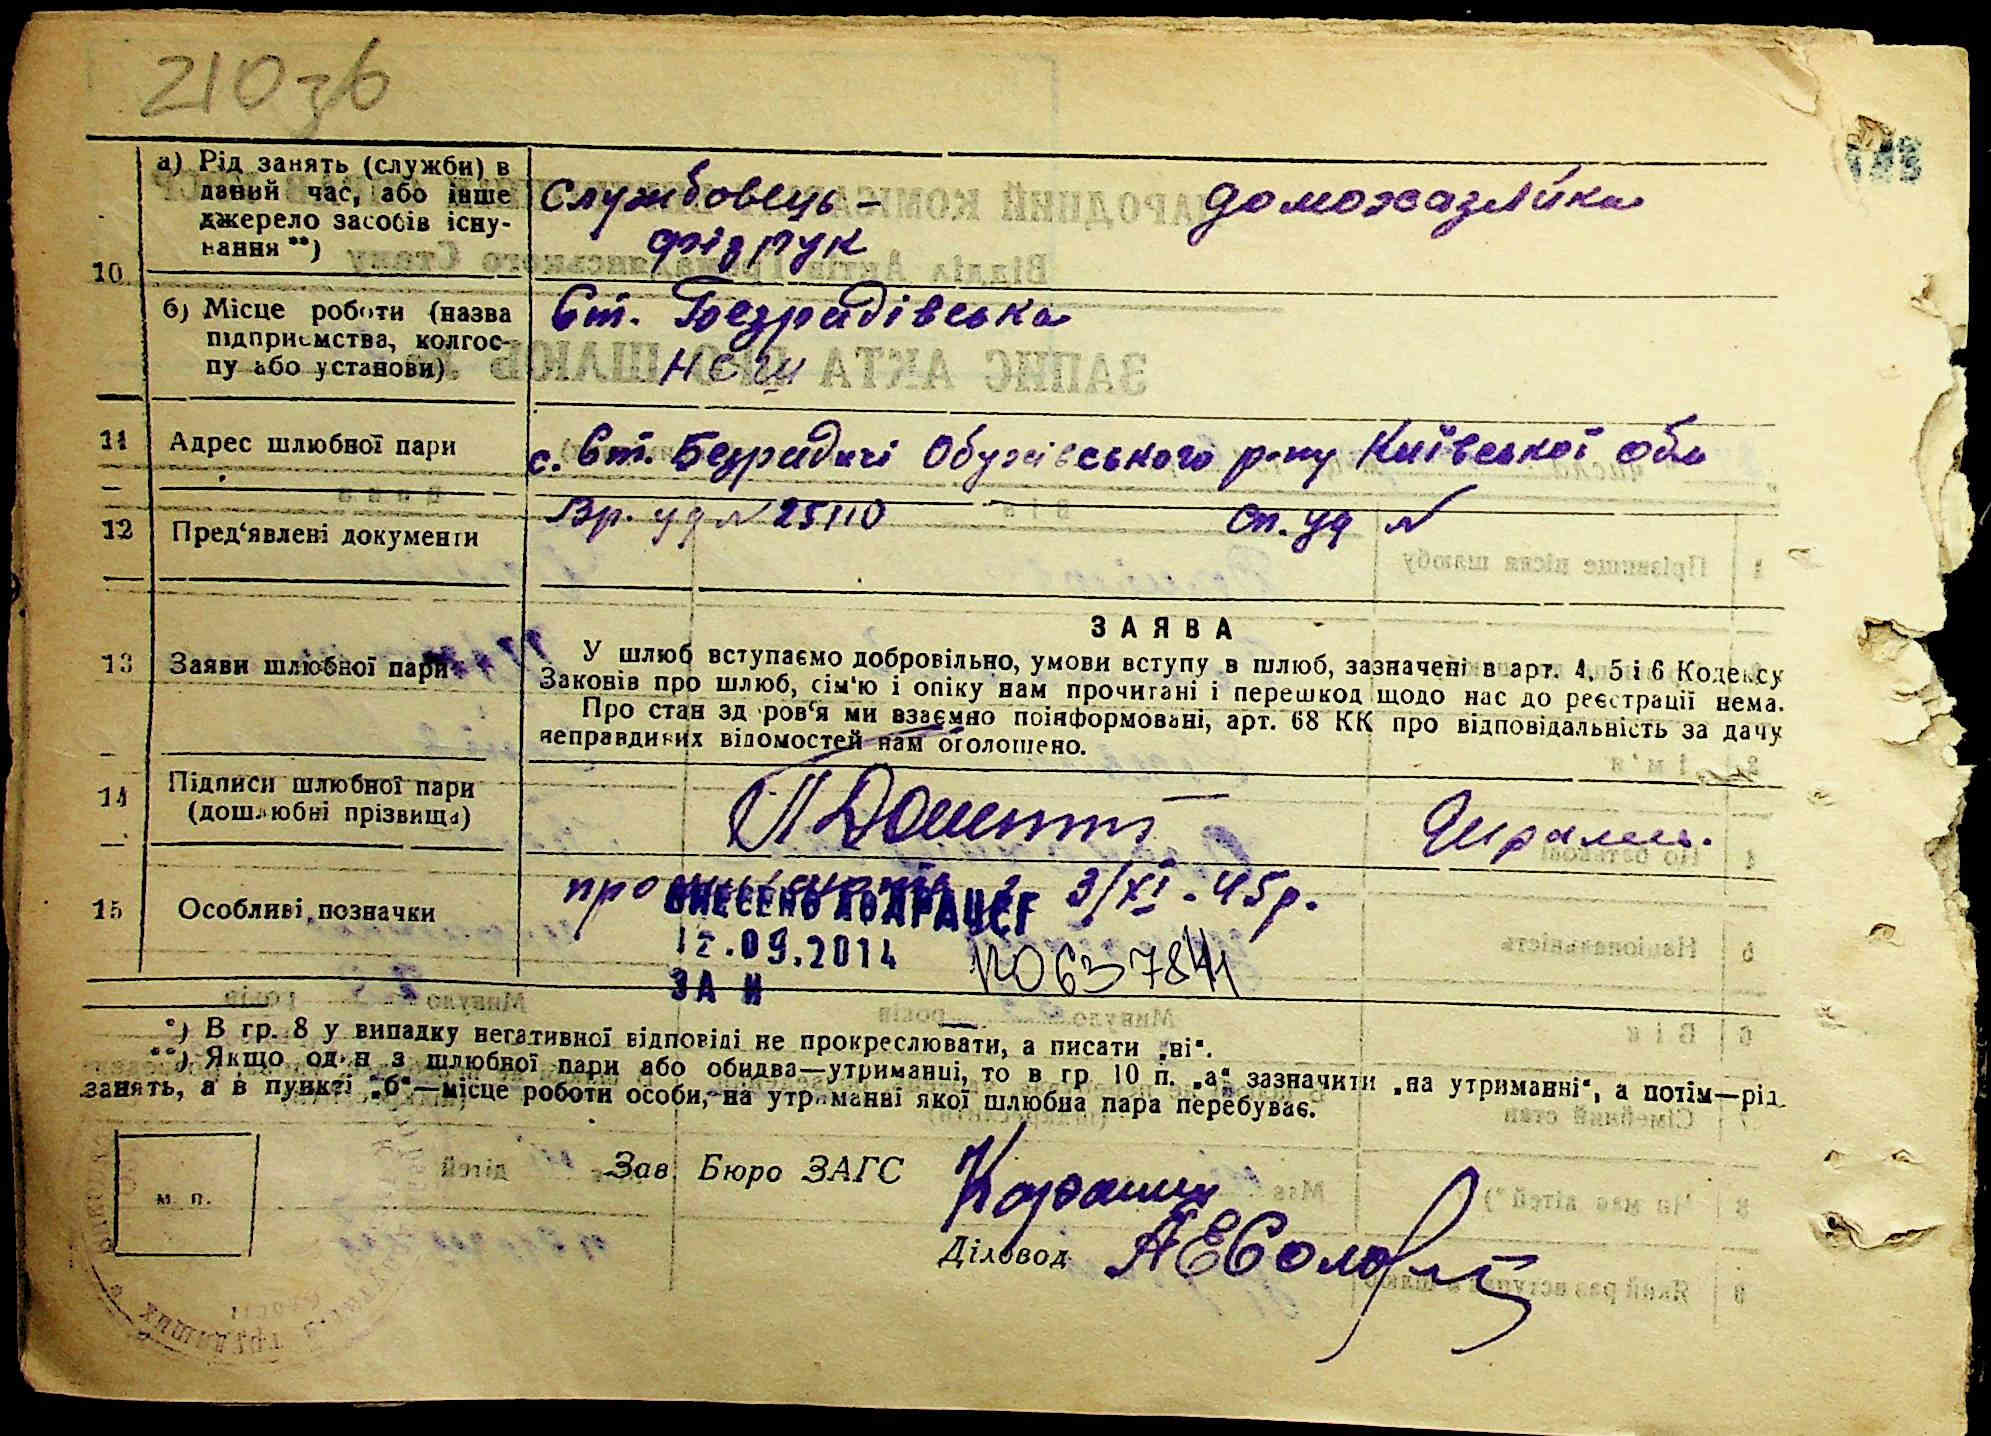 210зв
а) Рід занять (служби) в
даний час, або інше
джерело засобів існу-
вання **)
Службовець –
фізрук
домохазяйка
10
б) Місце роботи (назва
підприємства, колгос-
пу або установи)
Ст. Безрадівська
НСШ
11 Адрес шлюбної пари
с. Ст. Безрадичі Обухівського р-ну Київської обл
12 Пред'явлені документи
Вр. уд № 25110
Сп. уд №
ЗАЯВА
13 Заяви шлюбної пари
У шлюб вступаємо добровільно, умови вступу в шлюб, зазначені в арт. 4, 5 і 6 Кодексу
Законів про шлюб, сім'ю і опіку нам прочитані і перешкод щодо нас до реєстрації нема.
Про стан здоров'я ми взаємно поінформовані, арт. 68 КК про відповідальність за дачу
неправдивих відомостей нам оголошено.
14 Підписи шлюбної пари
(дошлюбні прізвища)
15 Особливі позначки
про з 3/XI - 45р.
ВНЕСЕНО ДО ДРАЦСГ
12.09.2014
ЗА №
*) В гр. 8 у випадку негативної відповіді не прокреслювати, а писати „ні“.
**) Якщо один з шлюбної пари або обидва—утриманці, то в гр 10 п. „а“ зазначити „на утриманні“, а потім—рід
занять, а в пункті „б“—місце роботи особи, на утриманні якої шлюбна пара перебуває.
м. п.
Зав. Бюро ЗАГС
Діловод